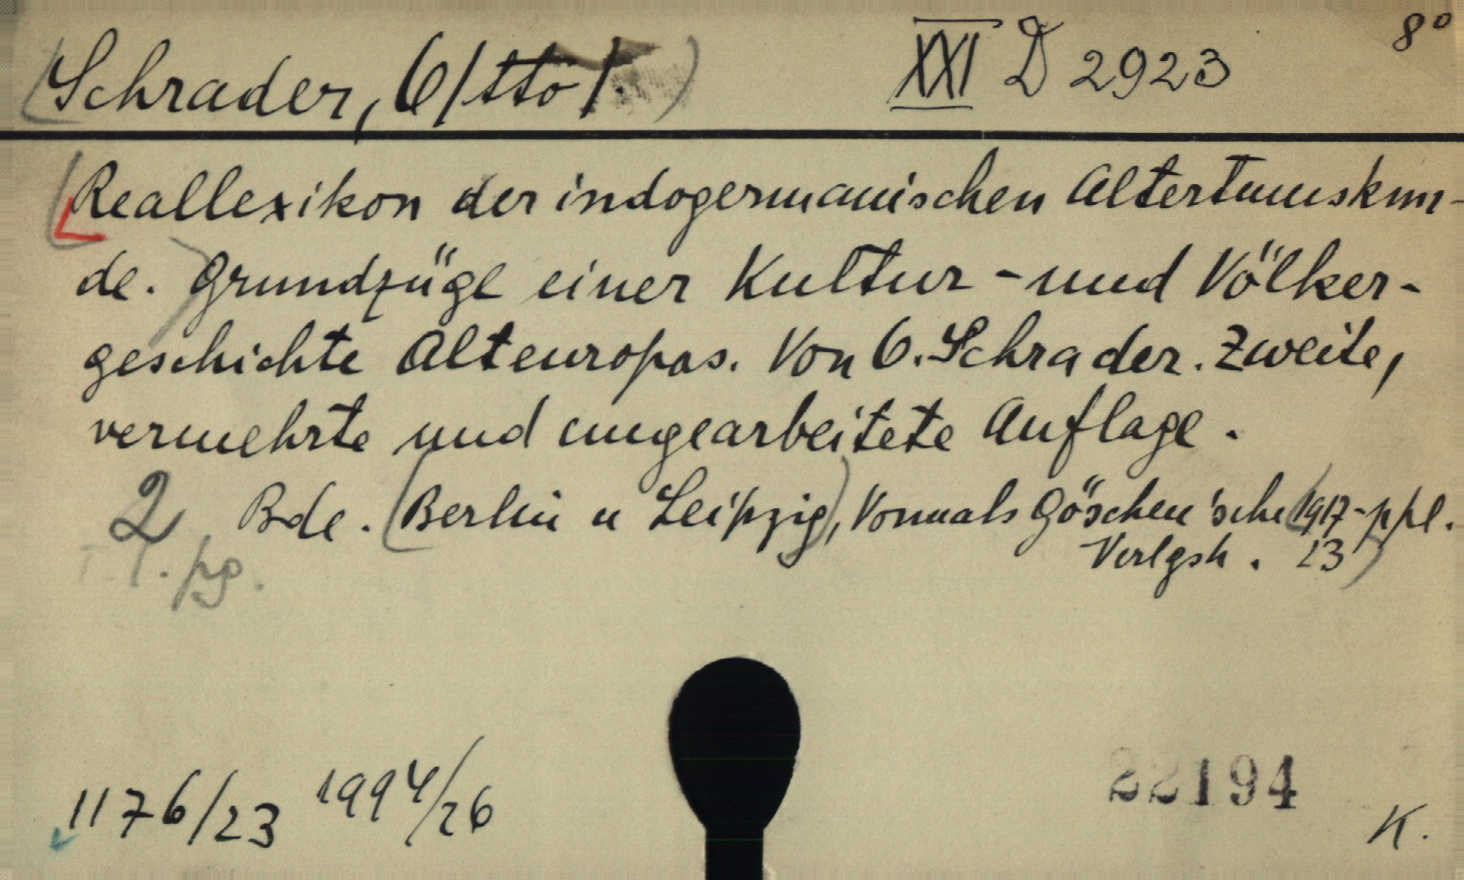 Schrader, O/tto/. XXI D 2923 8°
Reallexikon der indogermanischen Altertumskun-
de. Grundzüge einer Kultur- und Völker-
geschichte Alteuropas. Von O. Schrader. Zweite,
vermehrte und umgearbeitete Auflage.
2 Bde. (Berlin u Leipzig), Vormals Göschen'sche (1917-
Verlgsh. 23)
T. 1. pg.
1176/23 1994/26 22194
K.